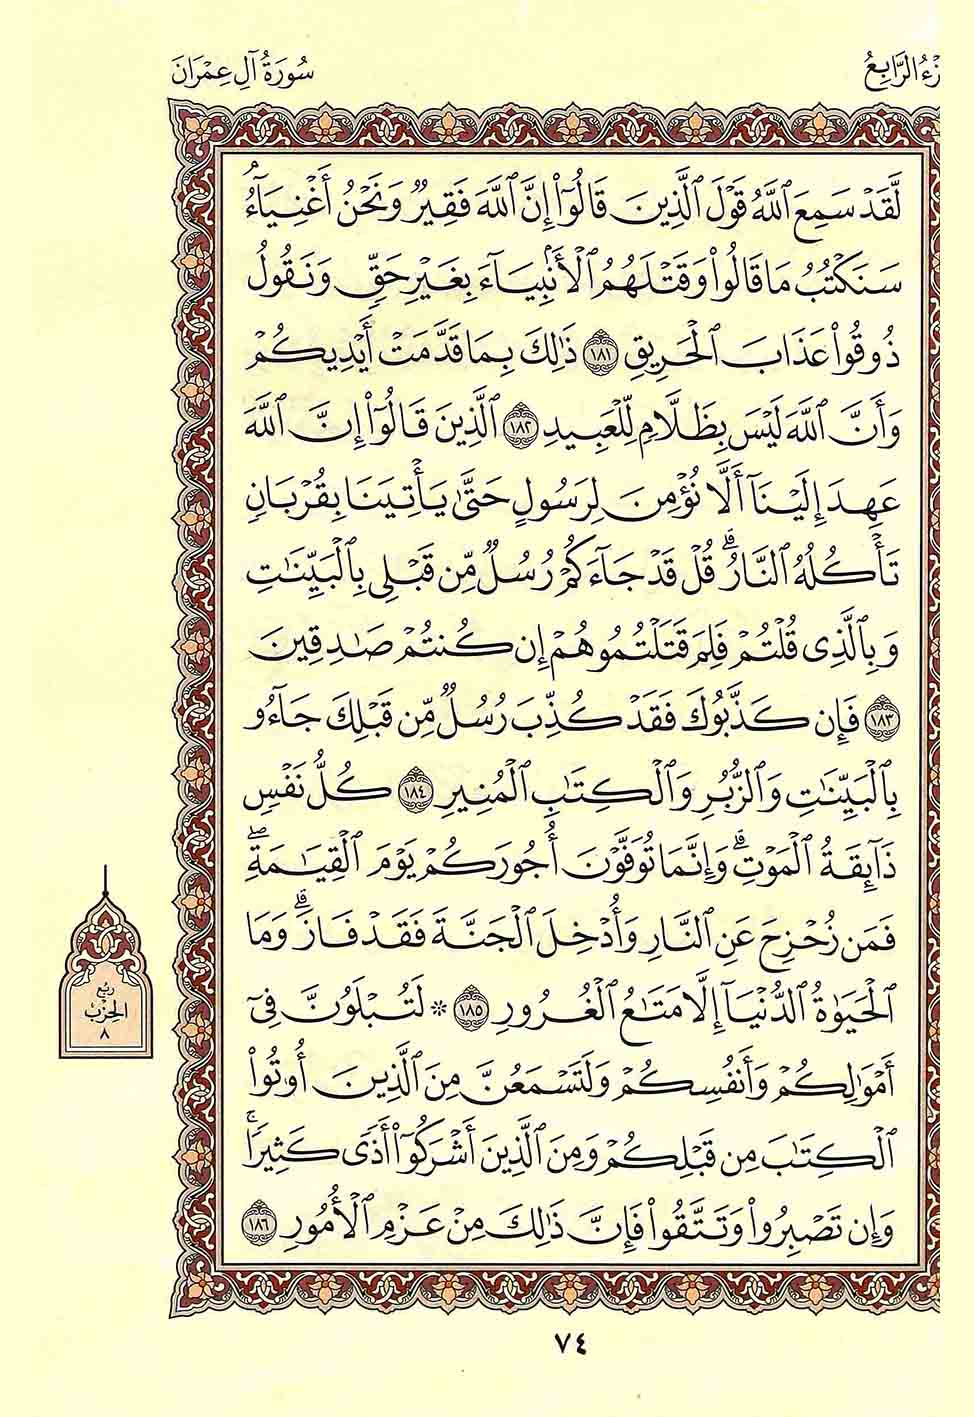 زْءُ الرَّابِعُ
سُورَةُ آلِ عِمْرَانَ
لَّقَدْ سَمِعَ ٱللَّهُ قَوْلَ ٱلَّذِينَ قَالُوٓا۟ إِنَّ ٱللَّهَ فَقِيرٌ وَنَحْنُ أَغْنِيَآءُ ۘ
سَنَكْتُبُ مَا قَالُوا۟ وَقَتْلَهُمُ ٱلْأَنۢبِيَآءَ بِغَيْرِ حَقٍّ وَنَقُولُ
ذُوقُوا۟ عَذَابَ ٱلْحَرِيقِ ١٨١ ذَٰلِكَ بِمَا قَدَّمَتْ أَيْدِيكُمْ
وَأَنَّ ٱللَّهَ لَيْسَ بِظَلَّامٍ لِّلْعَبِيدِ ١٨٢ ٱلَّذِينَ قَالُوٓا۟ إِنَّ ٱللَّهَ
عَهِدَ إِلَيْنَآ أَلَّا نُؤْمِنَ لِرَسُولٍ حَتَّىٰ يَأْتِيَنَا بِقُرْبَانٍ
تَأْكُلُهُ ٱلنَّارُ ۗ قُلْ قَدْ جَآءَكُمْ رُسُلٌ مِّن قَبْلِى بِٱلْبَيِّنَٰتِ
وَبِٱلَّذِى قُلْتُمْ فَلِمَ قَتَلْتُمُوهُمْ إِن كُنتُمْ صَٰدِقِينَ
١٨٣ فَإِن كَذَّبُوكَ فَقَدْ كُذِّبَ رُسُلٌ مِّن قَبْلِكَ جَآءُو
بِٱلْبَيِّنَٰتِ وَٱلزُّبُرِ وَٱلْكِتَٰبِ ٱلْمُنِيرِ ١٨٤ كُلُّ نَفْسٍ
ذَآئِقَةُ ٱلْمَوْتِ ۗ وَإِنَّمَا تُوَفَّوْنَ أُجُورَكُمْ يَوْمَ ٱلْقِيَٰمَةِ ۖ
فَمَن زُحْزِحَ عَنِ ٱلنَّارِ وَأُدْخِلَ ٱلْجَنَّةَ فَقَدْ فَازَ ۗ وَمَا
ٱلْحَيَوٰةُ ٱلدُّنْيَآ إِلَّا مَتَٰعُ ٱلْغُرُورِ ١٨٥ * لَتُبْلَوُنَّ فِىٓ
أَمْوَٰلِكُمْ وَأَنفُسِكُمْ وَلَتَسْمَعُنَّ مِنَ ٱلَّذِينَ أُوتُوا۟
ٱلْكِتَٰبَ مِن قَبْلِكُمْ وَمِنَ ٱلَّذِينَ أَشْرَكُوٓا۟ أَذًى كَثِيرًا ۚ
وَإِن تَصْبِرُوا۟ وَتَتَّقُوا۟ فَإِنَّ ذَٰلِكَ مِنْ عَزْمِ ٱلْأُمُورِ ١٨٦
ربع
الحزب
٨
٧٤